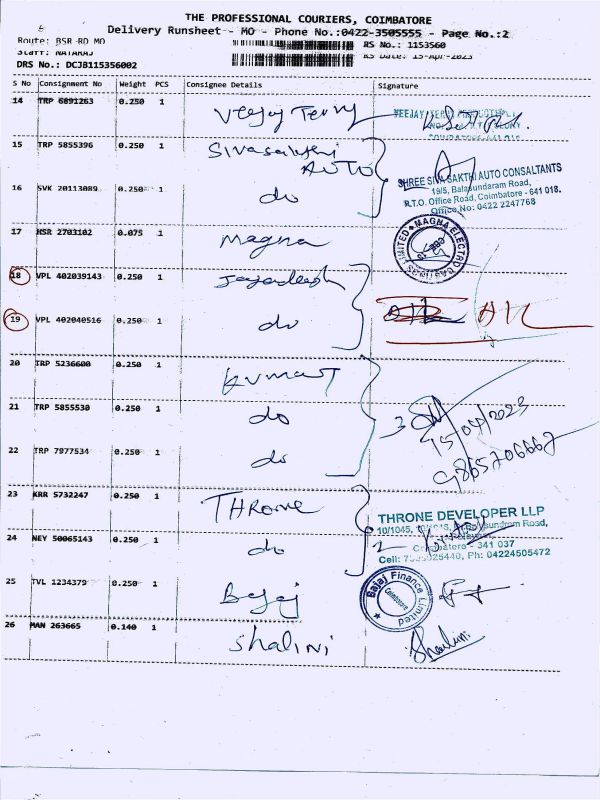 THE PROFESSIONAL COURIERS, COIMBATORE
Delivery Runsheet - MO - Phone No.:0422-3505555 - Page No.:2
Route: BSR RD MO
RS No.: 1153560
Staff: NATARAJ
RS Date: 15-Apr-2023
DRS No.: DCJB115356002
S No Consignment No Weight PCS Consignee Details Signature
14 TRP 6891263 0.250 1 Veejay Terry
VEEJAY
15 TRP 5855396 0.250 1 Sivasakthi AUTO
SHREE SIVA SAKTHI AUTO CONSULTANTS
19/5, Balasundaram Road,
R.T.O. Office Road, Coimbatore - 641 018.
Office No: 0422 2247768
16 SVK 20113089 0.250 1 do
17 NSR 2703102 0.075 1 Magna
MAGNA ELECTRO CASTINGS LIMITED
18 VPL 402039143 0.250 1
19 VPL 402040516 0.250 1 do
20 TRP 5236600 0.250 1 Kumar
21 TRP 5855530 0.250 1 do
3
15/04/2023
9865706662
22 TRP 7977534 0.250 1 do
23 KRR 5732247 0.250 1 THRONE
THRONE DEVELOPER LLP
Coimbatore - 341 037
Ph: 04224505472
24 NEY 50065143 0.250 1 do
2
25 TVL 1234379 0.250 1 Bajaj
Bajaj Finance Limited
Coimbatore
26 MAN 263665 0.140 1 Shalini
Shalini